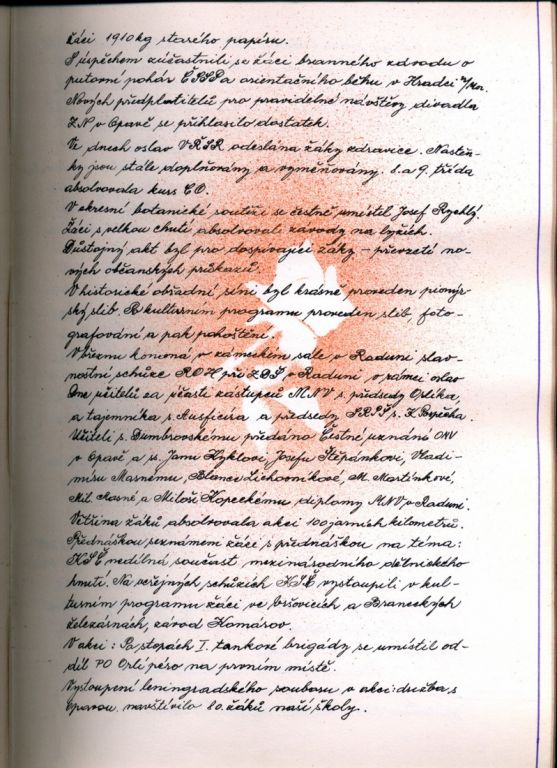 žáci 1910 kg starého papíru.
S úspěchem zúčastnili se žáci branného závodu o
putovní pohár ČSSP a orientačního běhu v Hradci n/Mor.
Nových předplatitelů pro pravidelné návštěvy divadla
ZN v Opavě se přihlásilo dostatek.
Ve dnech oslav VŘSR odeslána žáky zdravice. Nástěn-
ky jsou stále doplňovány a vyměňovány. 8. a 9. třída
absolvovala kurs CO.
V okresní botanické soutěži se čestně umístil Josef Rychlý.
Žáci s velkou chutí absolvovali závody na lyžích.
Důstojný akt byl pro dospívající žáky – převzetí no-
vých občanských průkazů.
V historické obřadní síni byl krásně proveden pionýr-
ský slib. Po kulturním programu proveden slib, foto-
grafování a pak pohoštění.
V březnu konaná, v zámeckém sále v Raduni slav-
nostní schůze ROH při ZDŠ v Raduni v rámci oslav
Dne učitelů za účasti zástupců MNV s. předsedy Orlíka,
a tajemníka s. a předsedy SRPŠ s.
Učiteli s. Dumbrovskému předáno Čestné uznání ONV
v Opavě a ss. Janu Kyklovi, Josefu Štěpánkovi, Vladi-
míru Masnému, Blence Lichovníkové, M. Martinkové,
Mil. Masné, a Miloši Kopeckému diplomy MNV v Raduni.
Většina žáků absolvovala akci 100 jarních kilometrů.
Přednáškou seznámeni žáci s přednáškou na téma:
KSČ nedílná součást mezinárodního dělnického
hnutí. Na veřejných schůzích KSČ vystoupili v kul-
turním programu žáci ve Vršovicích a Braneckých
železárnách, závod Komárov.
V akci: Po stopách I. tankové brigády se umístil od-
díl PO na prvním místě.
Vystoupení leningradského souboru v akci: družba s
Opavou navštívilo 80. žáků naší školy.